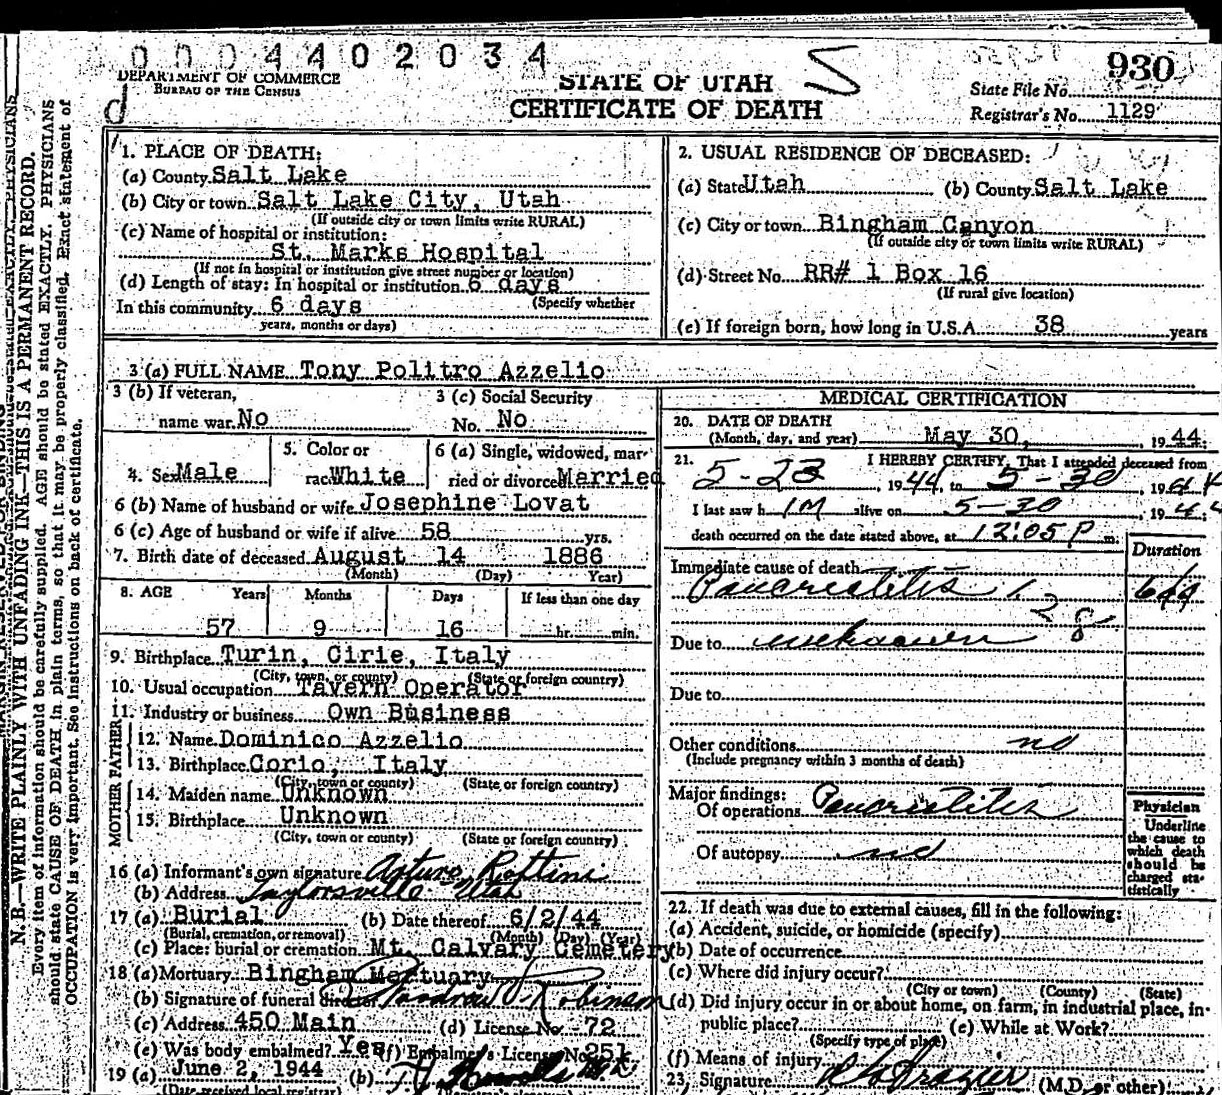 0 0 0 4 4 0 2 0 3 4
930
DEPARTMENT OF COMMERCE
BUREAU OF THE CENSUS
STATE OF UTAH
CERTIFICATE OF DEATH
State File No.
Registrar's No. 1129
N. B.—WRITE PLAINLY WITH UNFADING INK—THIS IS A PERMANENT RECORD.
Every item of information should be carefully supplied. AGE should be stated EXACTLY. PHYSICIANS
should state CAUSE OF DEATH in plain terms, so that it may be properly classified. Exact statement of
OCCUPATION is very important. See instructions on back of certificate.
1. PLACE OF DEATH:
(a) County Salt Lake
(b) City or town Salt Lake City, Utah
(If outside city or town limits write RURAL)
(c) Name of hospital or institution:
St. Marks Hospital
(If not in hospital or institution give street number or location)
(d) Length of stay: In hospital or institution 6 days
(Specify whether
In this community 6 days
years, months or days)
2. USUAL RESIDENCE OF DECEASED:
(a) State Utah (b) County Salt Lake
(c) City or town Bingham Canyon
(If outside city or town limits write RURAL)
(d) Street No. RR# 1 Box 16
(If rural give location)
(e) If foreign born, how long in U.S.A. 38 years
3 (a) FULL NAME Tony Politro Azzelio
3 (b) If veteran,
name war No
3 (c) Social Security
No. No
4. Sex Male
5. Color or
race White
6 (a) Single, widowed, mar-
ried or divorced Married
6 (b) Name of husband or wife Josephine Lovat
6 (c) Age of husband or wife if alive 58 yrs.
7. Birth date of deceased August 14 1886
(Month) (Day) Year)
8. AGE Years Months Days If less than one day
57 9 16 hr. min.
9. Birthplace Turin, Cirie, Italy
(City, town, or county) (State or foreign country)
10. Usual occupation Tavern Operator
11. Industry or business Own Business
FATHER
12. Name Dominico Azzelio
13. Birthplace Corio, Italy
(City, town or county) (State or foreign country)
MOTHER
14. Maiden name Unknown
15. Birthplace Unknown
(City, town or county) (State or foreign country)
16 (a) Informant's own signature Arturo Rottini
(b) Address Taylorsville Utah
17 (a) Burial (b) Date thereof 6/2/44
(Burial, cremation, or removal) (Month) (Day) (Year)
(c) Place: burial or cremation Mt. Calvary Cemetery
18 (a) Mortuary Bingham Mortuary
(b) Signature of funeral director Woodrow Robinson
(c) Address 450 Main (d) License No. 72
(e) Was body embalmed? Yes (f) Embalmer's License No. 251
19 (a) June 2, 1944 (b)
(Date received local registrar)
MEDICAL CERTIFICATION
20. DATE OF DEATH
(Month, day, and year) May 30, , 1944.
21. I HEREBY CERTIFY, That I attended deceased from
5-23, 1944, to 5-30, 1944
I last saw h im alive on 5-30, 1944
death occurred on the date stated above, at 12:05 P m.
Duration
Immediate cause of death
Pancreatitis
128
Due to unknown
Due to
Other conditions no
(Include pregnancy within 3 months of death)
Major findings:
Of operations Pancreatitis
Of autopsy no
Physician
Underline
the cause to
which death
should be
charged sta-
tistically
22. If death was due to external causes, fill in the following:
(a) Accident, suicide, or homicide (specify)
(b) Date of occurrence
(c) Where did injury occur?
(City or town) (County) (State)
(d) Did injury occur in or about home, on farm, in industrial place, in-
public place? (e) While at Work?
(Specify type of place)
(f) Means of injury
23. Signature Frazier (M.D. or other)